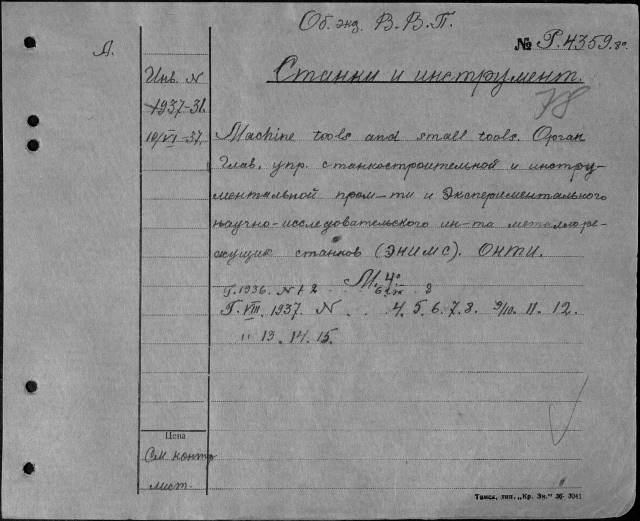 Об. энд. В.В.П.
Д.
№ Р.4359.
Инв. N
Станки и инструмент.
1937-31.
78
10/VI-37.
Machine tools and small tools. Орган
Глав. упр. станкостроительной и инстру-
ментальной пром-ти и Экспериментального
научно-исследовательского ин-та металлоре-
жущих станков (ЭНИМС). ОНТИ.
М. 4°
Г. 1936. N 12
Г. VIII. 1937. N . . 4. 5. 6. 7. 8. 9/10. 11. 12.
" 13. 14. 15.
Цена
См. контр
лист.
Томск, тип. „Кр. Зн." 36- 3041